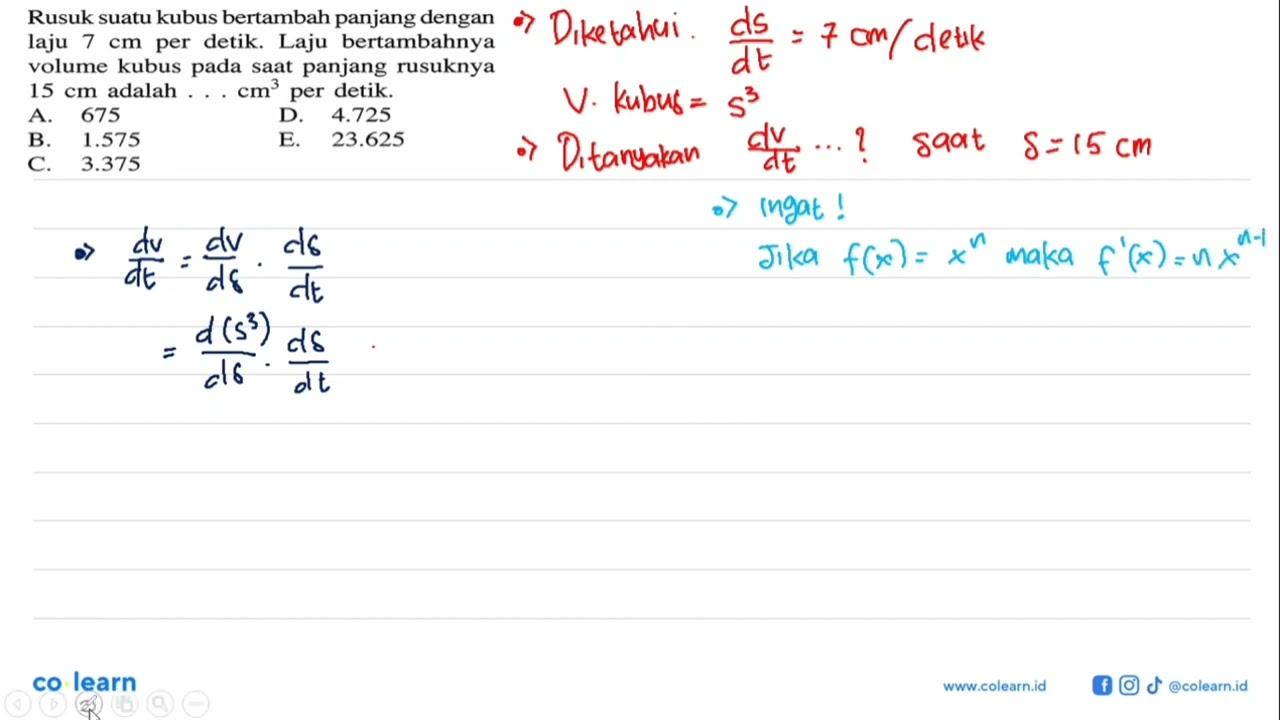 Rusuk suatu kubus bertambah panjang dengan
laju 7 cm per detik. Laju bertambahnya
volume kubus pada saat panjang rusuknya
15 cm adalah . . . cm³ per detik.
A. 675 D. 4.725
B. 1.575 E. 23.625
C. 3.375
Diketahui. ds/dt = 7 cm/detik
V. kubus = s³
Ditanyakan dv/dt ...? saat s = 15 cm
Ingat!
Jika f(x) = x^n maka f'(x) = n x^(n-1)
dv/dt = dv/ds . ds/dt
= d(s³)/ds . ds/dt
co learn
www.colearn.id @colearn.id